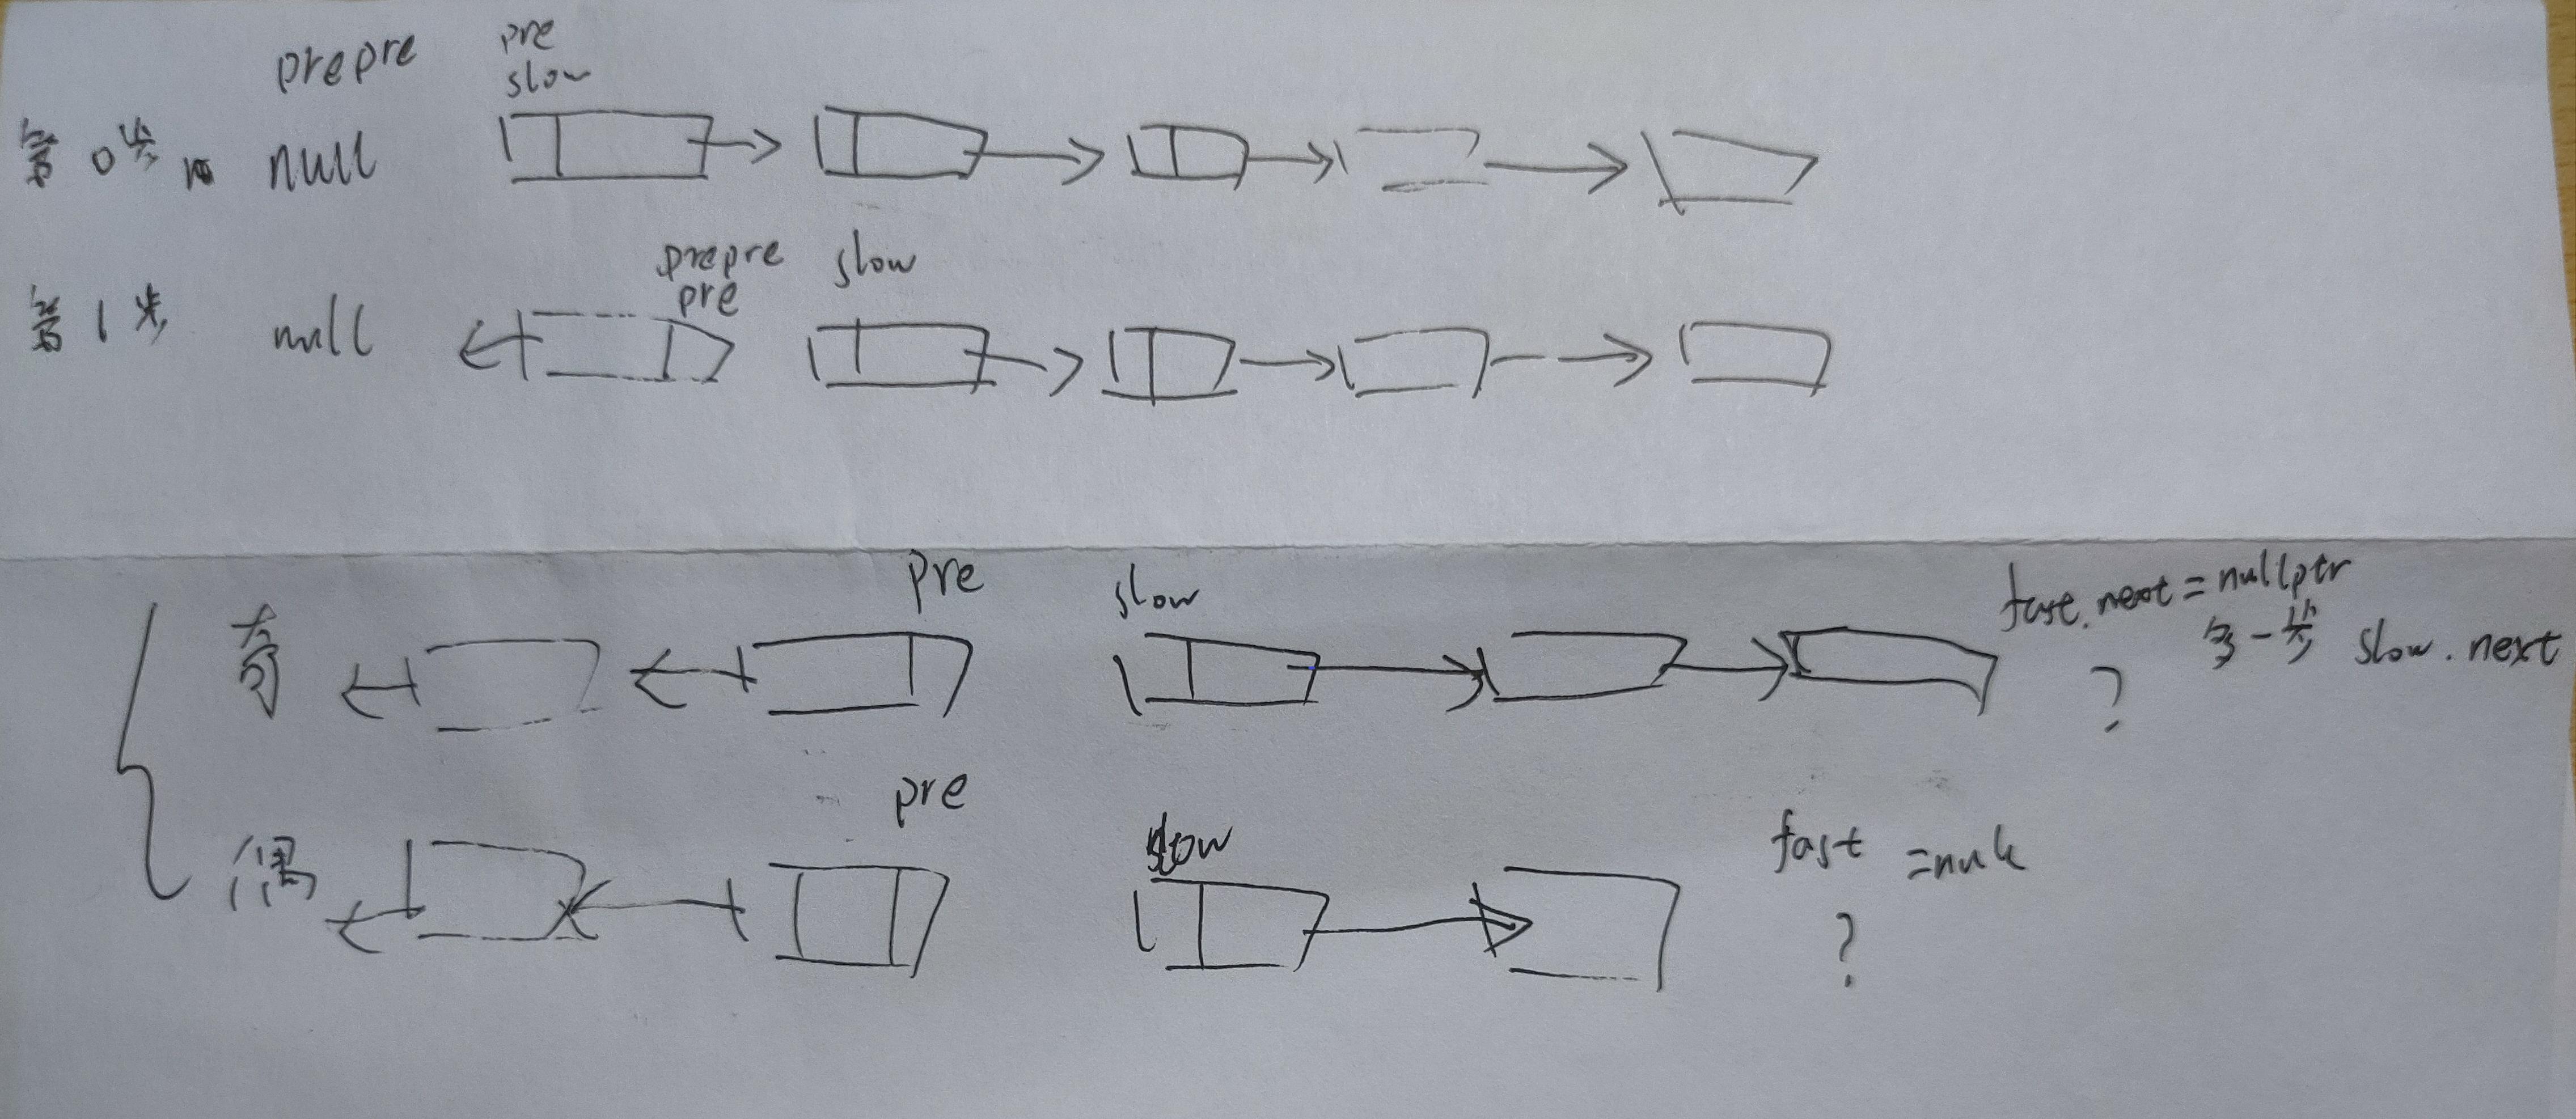 prepre pre
slow
第0步 null
prepre slow
pre
第1步 null
pre slow fast.next=nullptr
奇 多一步 slow.next
?
pre
偶 slow fast =null
?